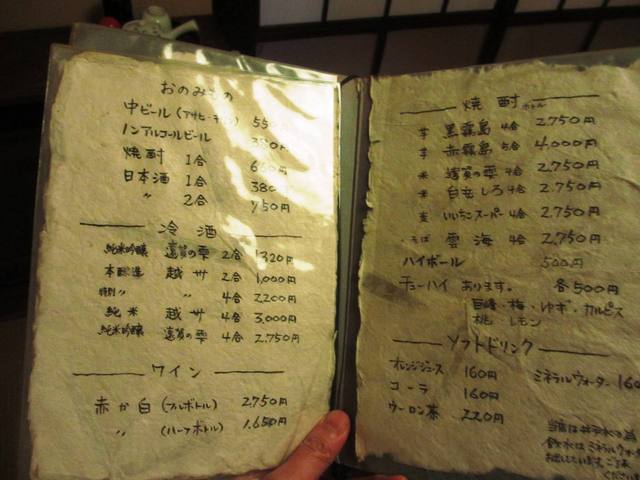 おのみもの
中ビール(アサヒ・キリン) 550円
ノンアルコールビール 350円
焼酎 1合 660円
日本酒 1合 380円
〃 2合 750円
冷酒
純米吟醸 遠賀の雫 2合 1320円
本醸造 越州 2合 1,000円
特別〃 〃 4合 2,200円
純米 越州 4合 3,000円
純米吟醸 遠賀の雫 4合 2,750円
ワイン
赤か白(フルボトル) 2,750円
〃 (ハーフボトル) 1,650円
焼酎 ボトル
芋 黒霧島 4合 2,750円
芋 赤霧島 5合 4,000円
米 遠賀の雫 4合 2,750円
米 白岳しろ 4合 2,750円
麦 いいちこスーパー 4合 2,750円
そば 雲海 4合 2,750円
ハイボール 500円
チューハイあります。 各500円
巨峰・梅・ゆず・カルピス
桃・レモン
ソフトドリンク
オレンジジュース 160円
コーラ 160円
ウーロン茶 220円
ミネラルウォーター 160
当店は井戸水の為
飲水はミネラルウォーター
お出ししています。ご了承
ください